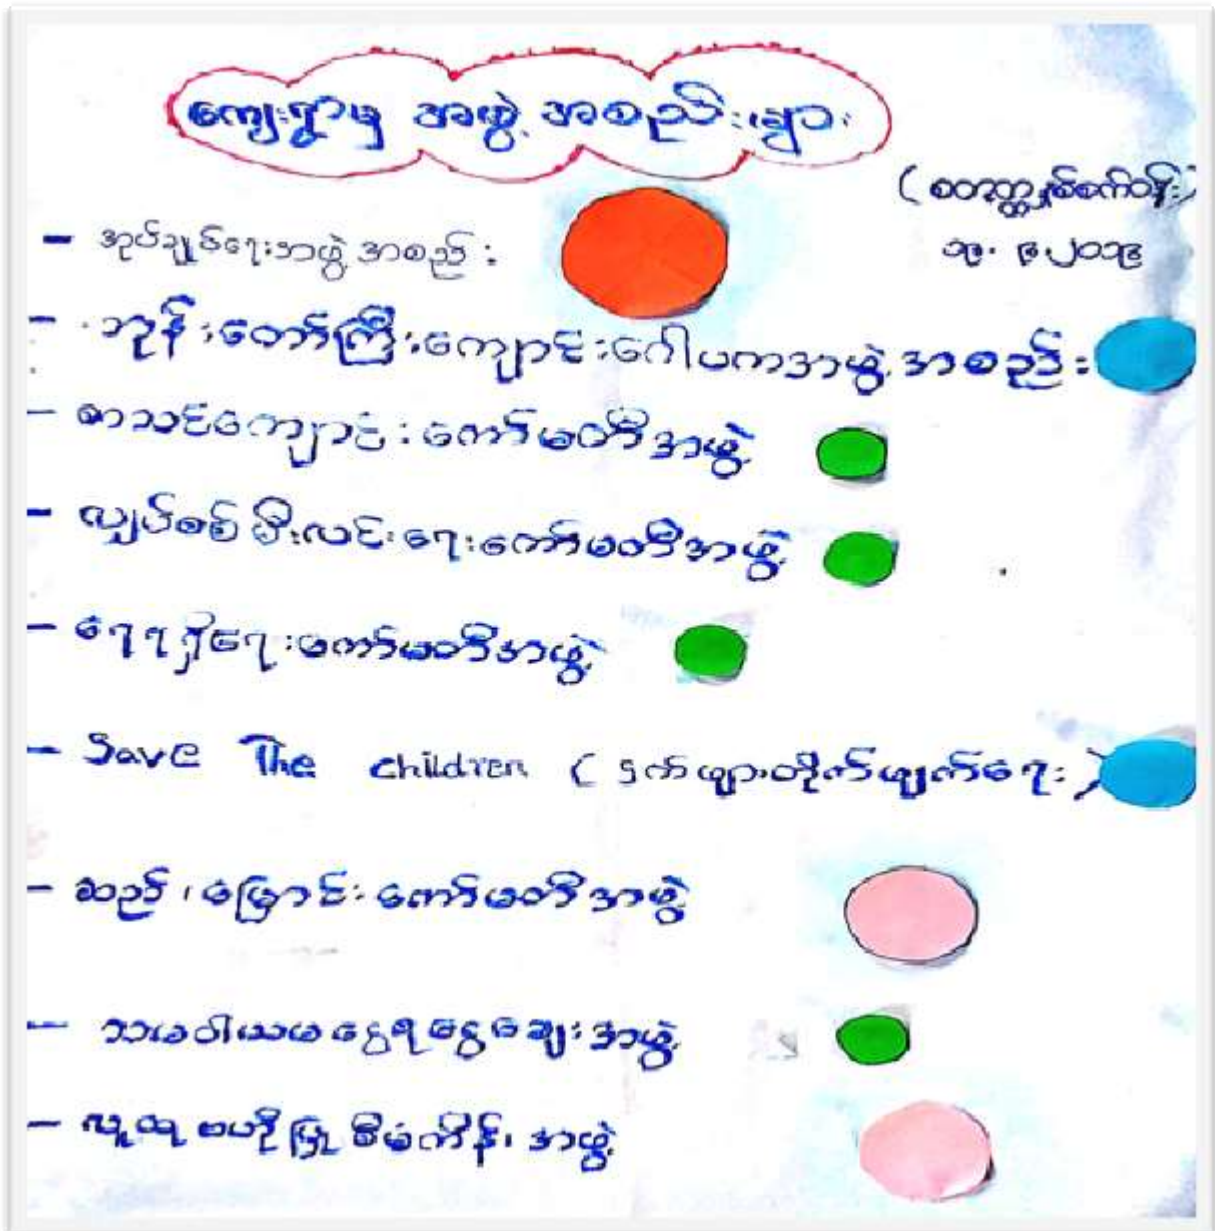 ကျေးရွာမှ အဖွဲ့ အစည်းများ
(စတုတ္ထနှစ်စက်ဝန်း)
၁၃.၉.၂၀၁၉
- အုပ်ချုပ်ရေးအဖွဲ့ အစည်း
- ဘုန်းတော်ကြီးကျောင်းဂေါပကအဖွဲ့ အစည်း
- စာသင်ကျောင်းကော်မတီအဖွဲ့
- လျှပ်စစ် မီးလင်းရေးကော်မတီအဖွဲ့
- ရေရရှိရေးကော်မတီအဖွဲ့
- Save The children (ငှက်ဖျားတိုက်ဖျက်ရေး)
- ဆည်၊မြောင်းကော်မတီအဖွဲ့
- သမဝါယမ ငွေစုငွေချေးအဖွဲ့
- လူထု ဗဟိုပြု စီမံကိန်း အဖွဲ့